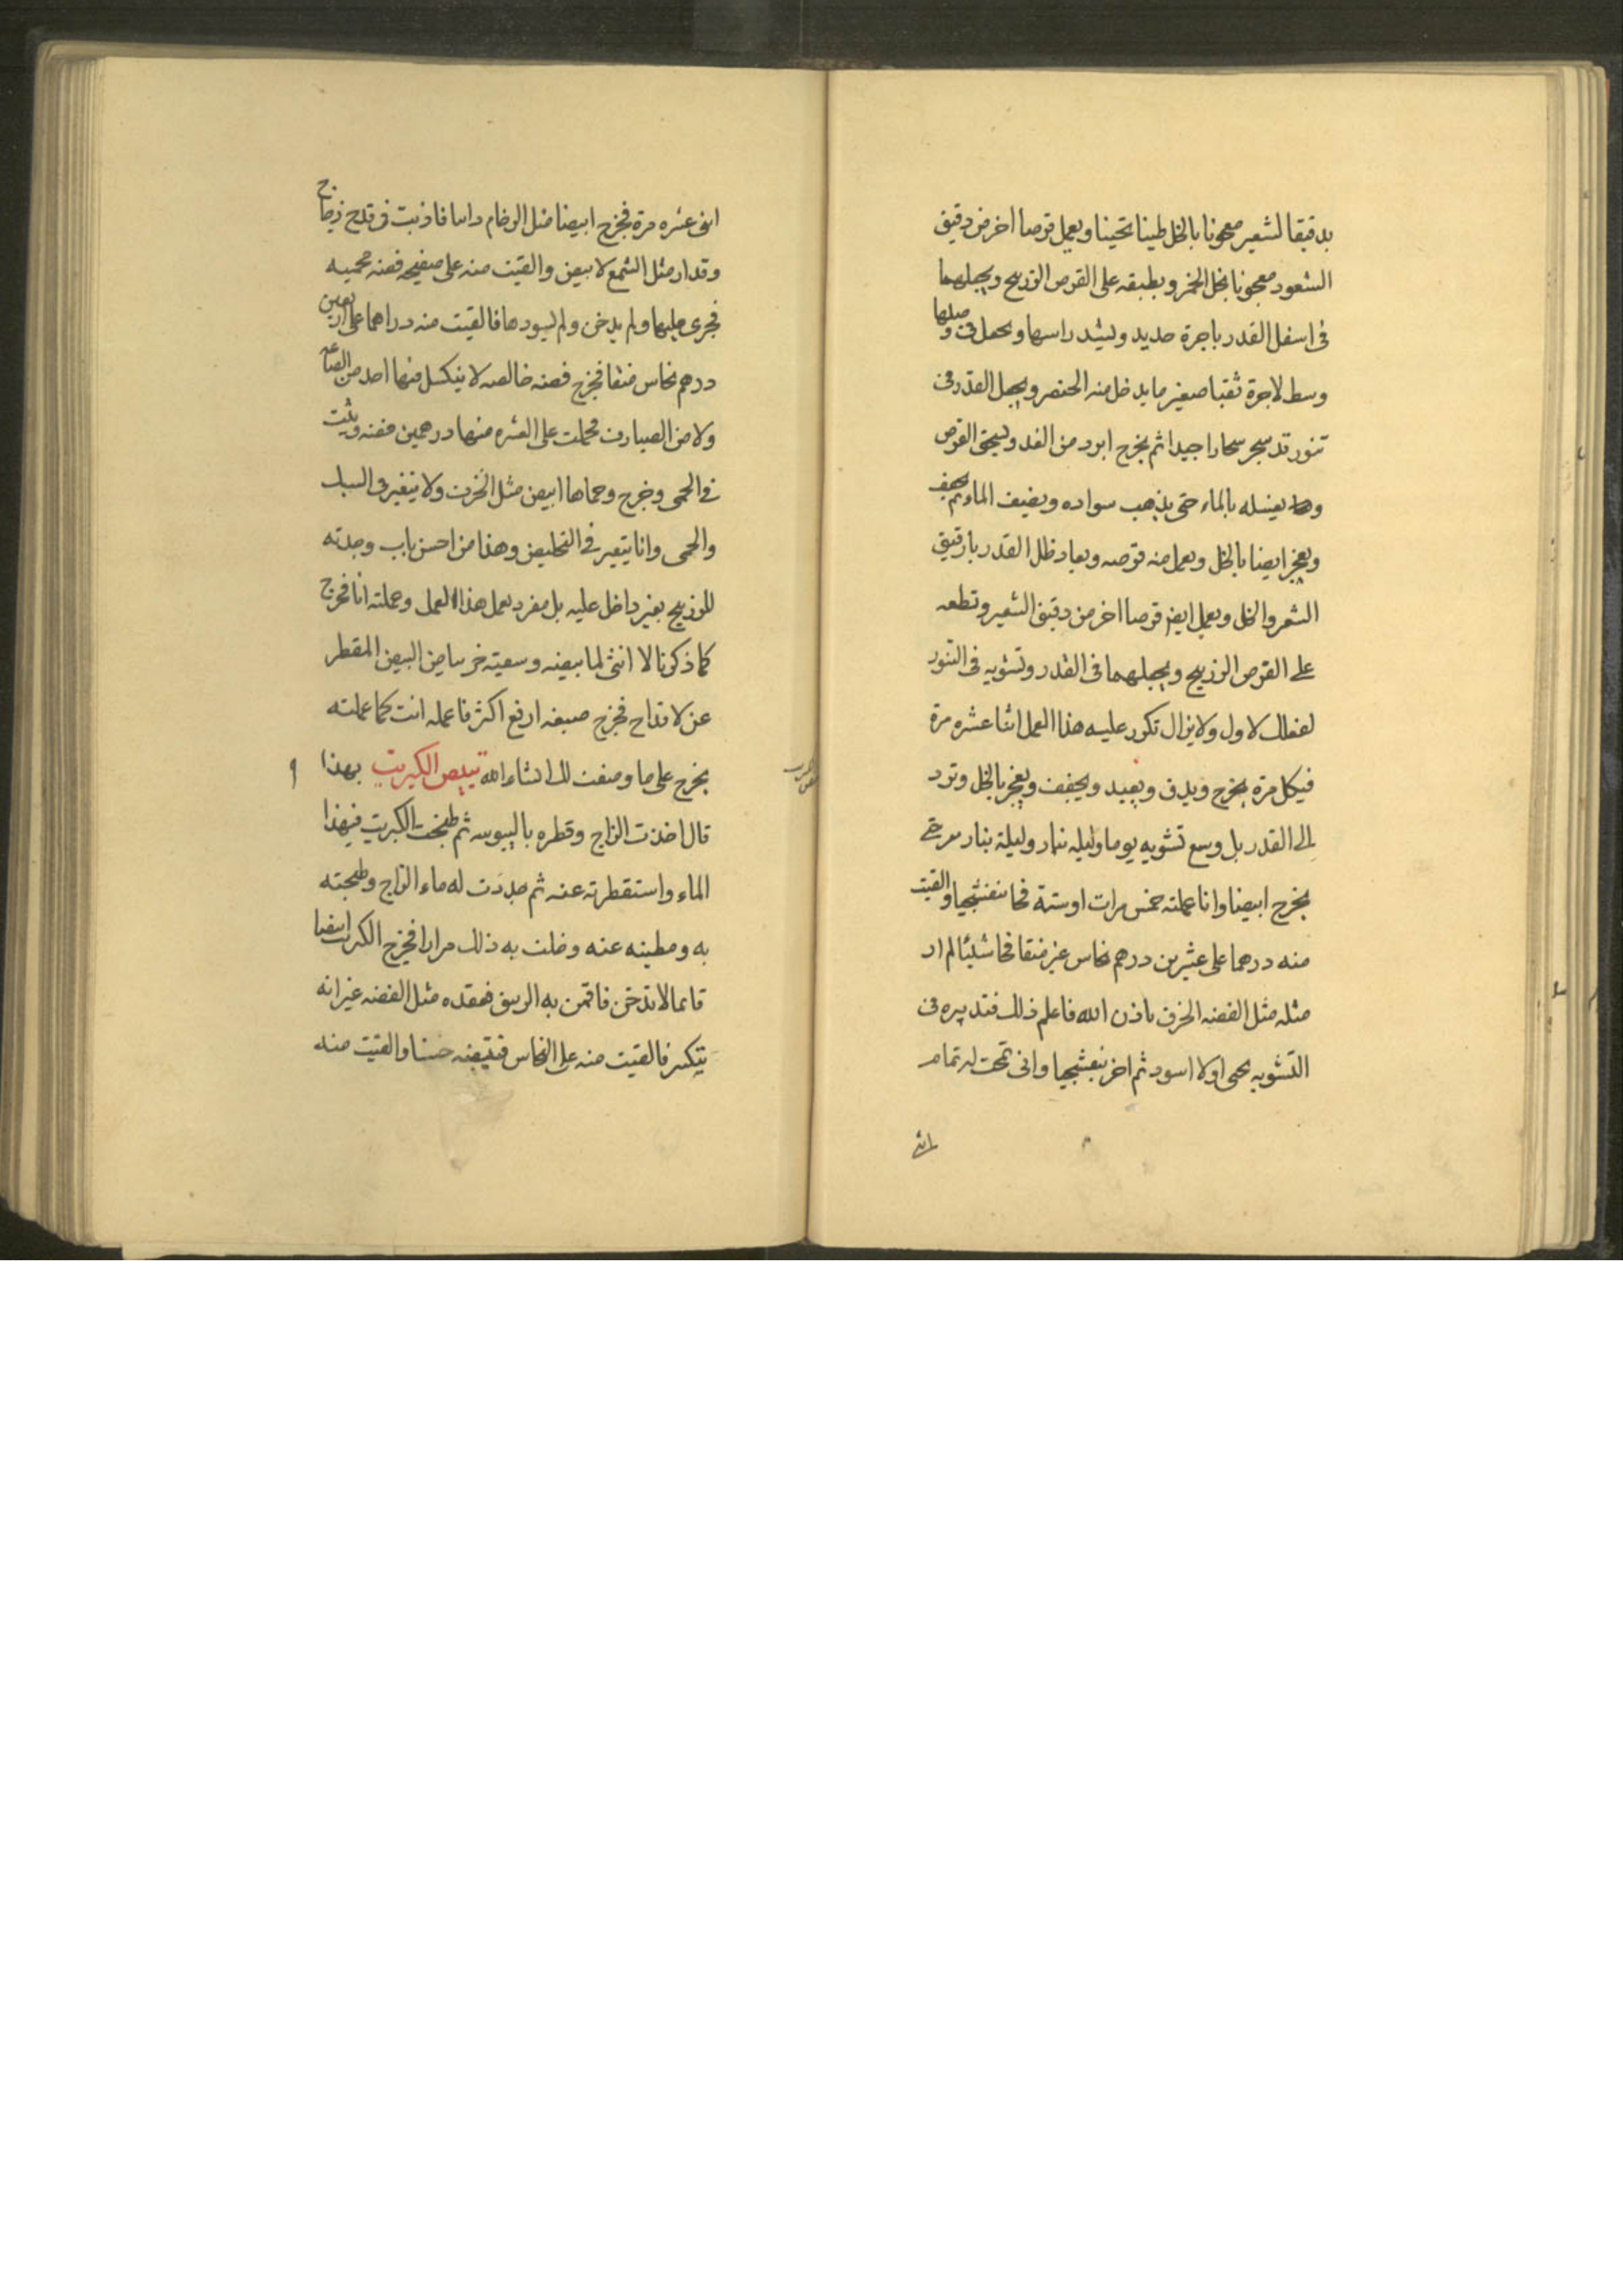 بدقيقا لشعير معجونا بالخل طينا تحينا ويعمل قرصا اخر من دقيق
الشعور معجونا بخل الخمر ويطبقه على القرص الزرنيخ ويجعلهما
فى اسفل القدر باجرة حديد ويشد راسها وصلها
وسط لاجرة ثقبا صغير ما يدخل منه الخنصر ويجعل القدر فى
تنور قد سجر سحارا جيدا ثم يخرج ابرد من الغد ويسحق القرص
يغسله بالماء حتى يذهب سواده ويضيف الماء ثم يجفف
ويعجن ايضا بالخل ويعمل منه قرصه ويعاد القدر
الشعر والخل ويعمل ايض قرصا اخر من دقيق الشعير وتطعه
على القرص الزرنيخ ويجعلهما فى القدر وتشويه فى التنور
لفعلك لاول ولا يزال تكرر عليه هذا العمل اثنا عشره مرة
فيكل مرة يخرج ويدق ويعيد ويجفف ويعجن بالخل وترد
الى القدر بل وسع تشويه يوما وليله بنار وليلة بنار سرحى
يخرج ابيضا وانا عملته خمس مرات اوستة فجا بنفشجيا والقيت
منه درهما على عشرين درهم نحاس غير منقا فجا شيئا لم ار
مثله مثل الفضه الخرف باذن الله فاعلم ذلك فتدبيره فى
التشويه يحى اولا اسود ثم اخر بنفشجيا وانى تمت له تمام
اثنى
اثنى عشره مرة فخرج ابيضا مثل الرخام راسا فاذبت فى قدح زجاج
وقد ار مثل الشمع لابيض والقيت منه على صفيحه فضه محميه
فجرى عليها ولم يدخن ولم يسودها فالقيت منه دراهما على اربعين
درهم نحاس منقا فخرج فضه خالصه لا ينكسل منها احد من الصاعه
ولا من الصيارف فحملت على العشره منها درهمين فضه وثبت
فى الحمى وخرج وحماها ابيض مثل الخزف ولا يتغير فى السبك
والحمى وانا يتغير فى التخليص وهذا من احسن باب وجدته
للزرنيخ بغير داخل عليه بل مفرد بعمل هذا العمل وعملته انا فخرج
كما ذكرنا لا اننى لما بيضه وسعيته خرسا من البيض المقطر
عن لاقداح فخرج صبغه ارفع اكثر فاعمله انت كما عملته
يخرج على ما وصفت لك انشاء الله تبيض الكبريت بهذا
قال اخذت الزاج وقطره باليبوسه ثم طبخت الكبريت فيهذا
الماء واستقطرته عنه ثم جددت له ماء الزاج وطبخته
به ومطينه عنه وفعلت به ذلك مرارا فخرج الكبريت ابيضا
قايما لا تدخن فاقمن به الزيبق فعقده مثل الفضه غير انه
يتكسر فالقيت منه على النحاس فبيضه حسنا والقيت منه